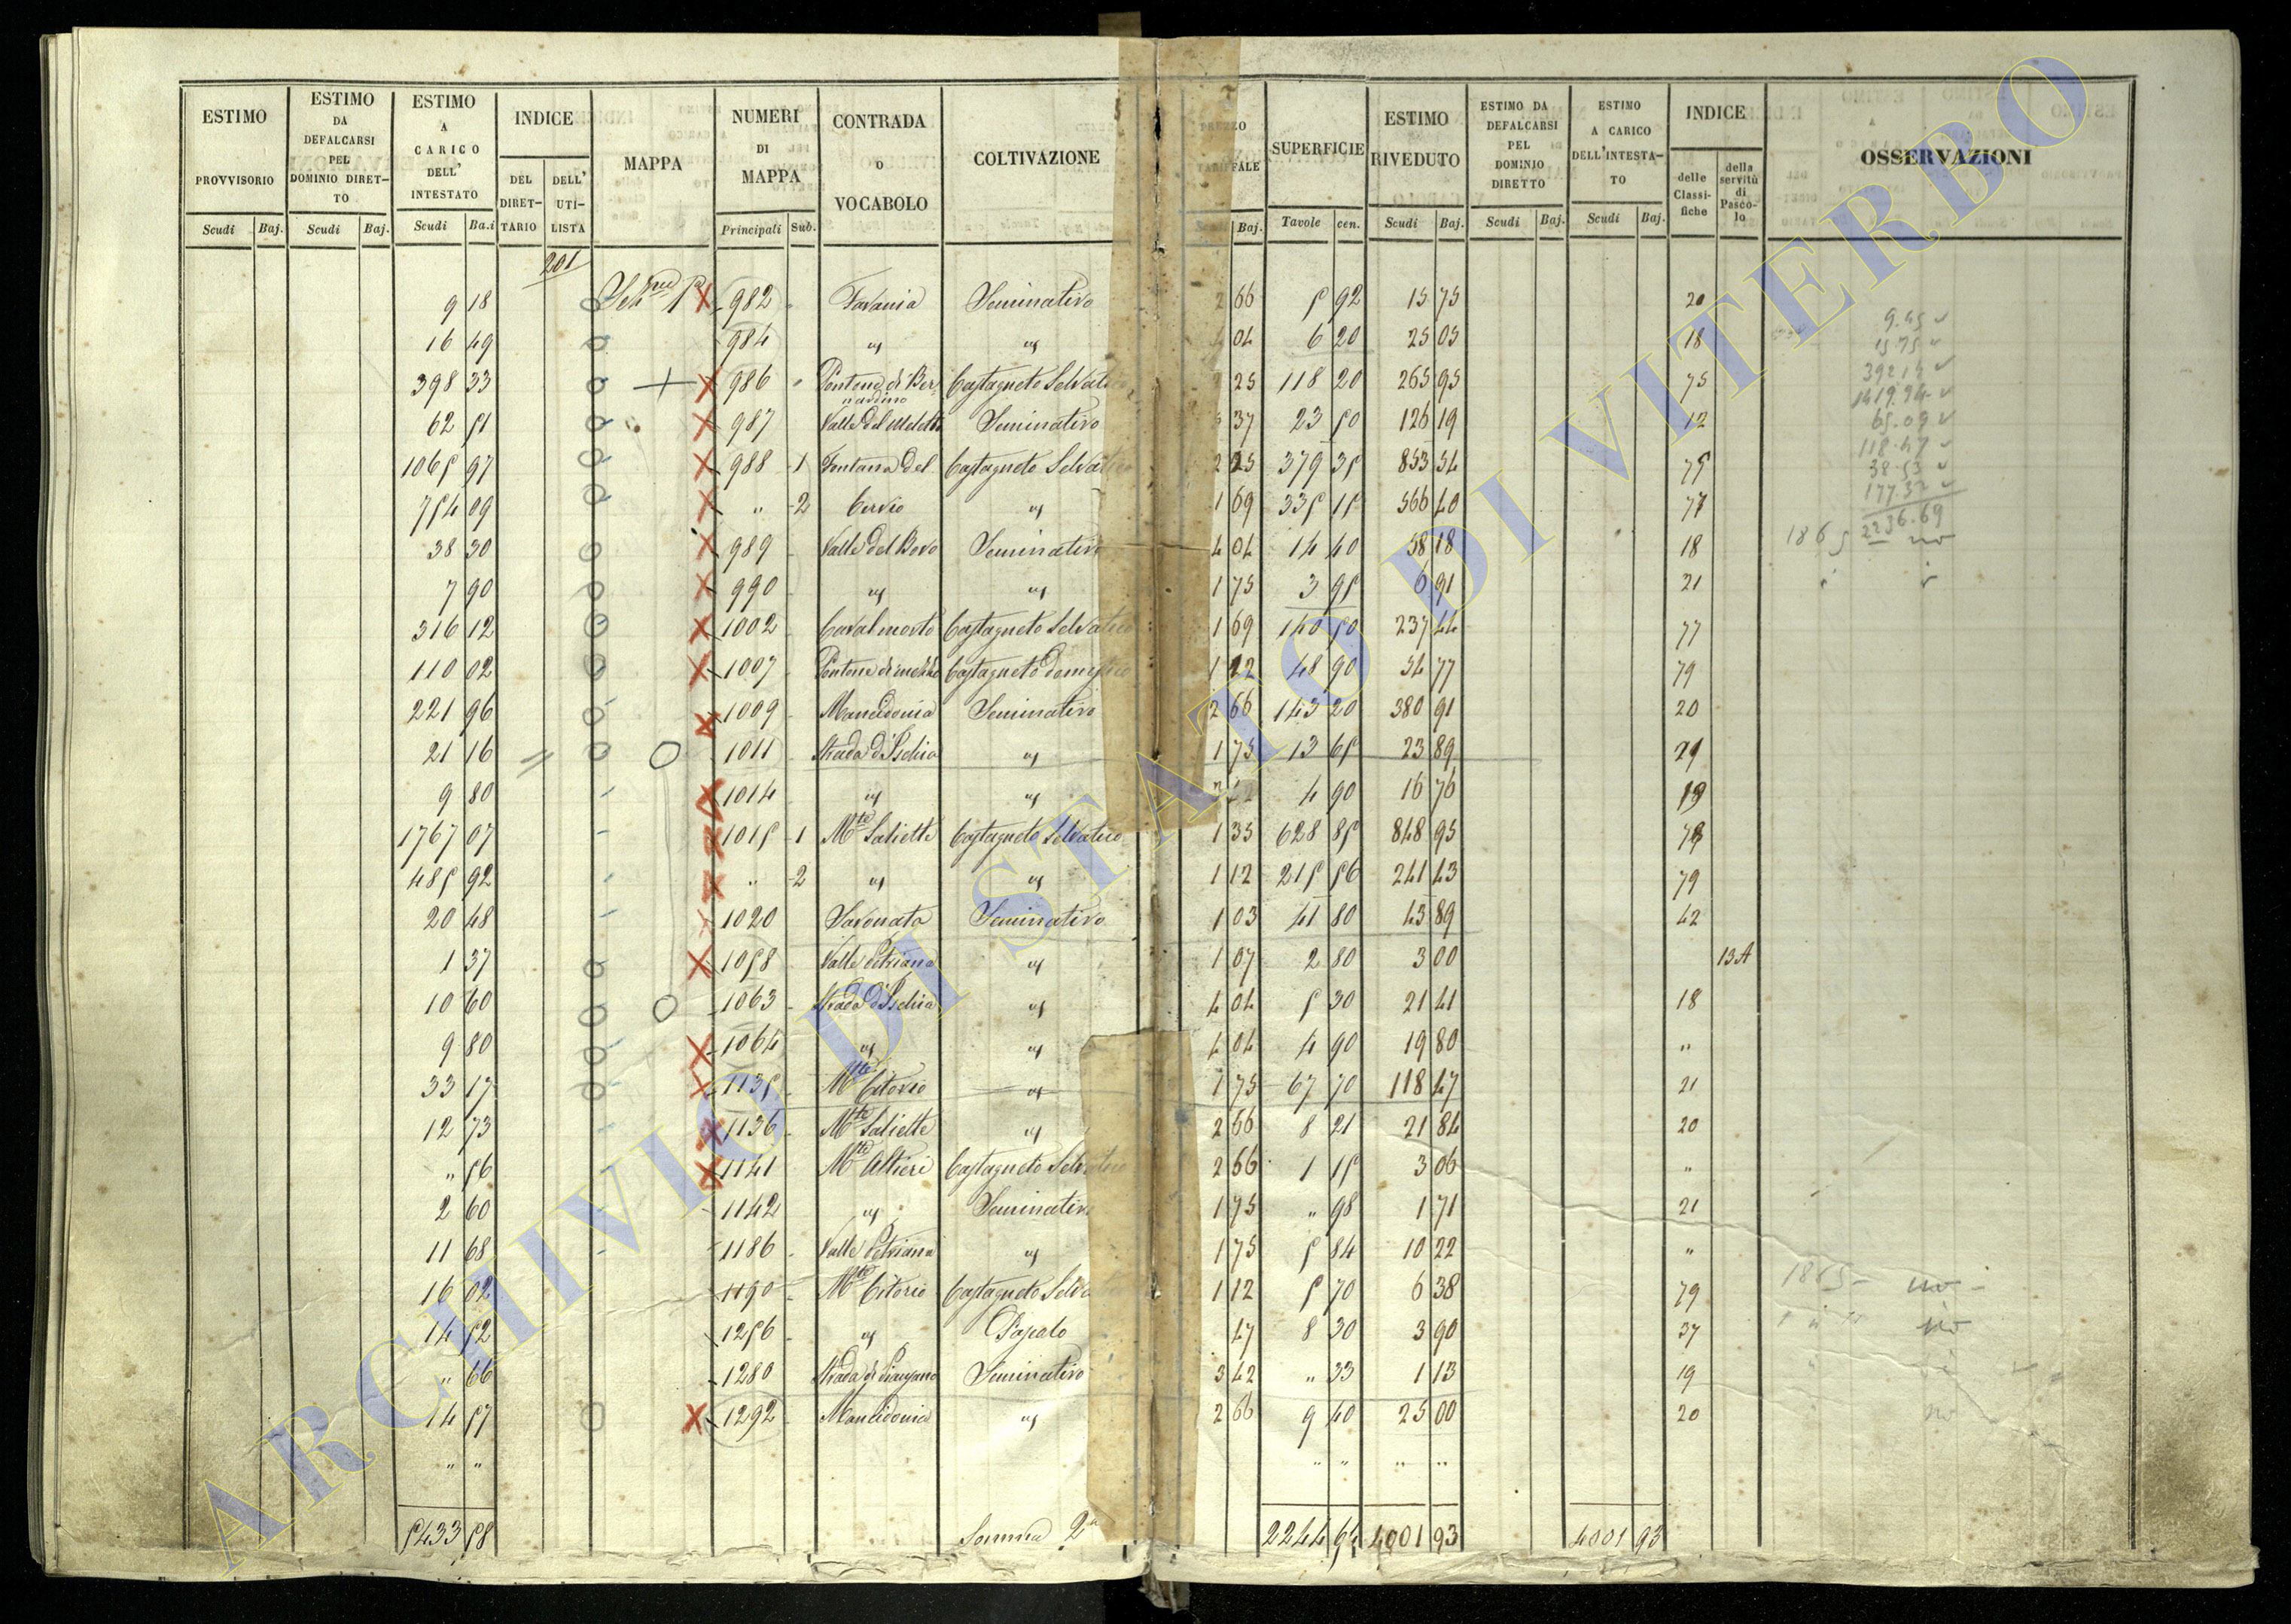 ESTIMO PROVVISORIO | ESTIMO DA DEFALCARSI PEL DOMINIO DIRETTO | ESTIMO A CARICO DELL' INTESTATO | INDICE | MAPPA | NUMERI DI MAPPA | CONTRADA O VOCABOLO | COLTIVAZIONE | SUPERFICIE | ESTIMO RIVEDUTO | ESTIMO DA DEFALCARSI PEL DOMINIO DIRETTO | ESTIMO A CARICO DELL'INTESTATO | INDICE | OSSERVAZIONI
Scudi Baj. | Scudi Baj. | Scudi Ba.i | DEL DIRETTARIO | DELL' UTILISTA | Principali Sub. | Baj. | Tavole cen. | Scudi Baj. | Scudi Baj. | Scudi Baj. | delle Classifiche | della servitù di Pascolo
201
9 18 982 Seminativo 2 66 5 92 15 75 20
16 49 984 " " 04 6 20 25 05 18
398 33 986 Pontone di Bernardino Castagneto Selvatico 25 118 20 265 95 75
62 51 987 Seminativo 37 23 50 126 19 12
1065 97 988 1 Fontana del Castagneto Selvatico 2 25 379 35 853 54 75
754 09 " 2 Cervio " 1 69 335 15 566 40 77
38 30 989 Valle del Bovo Seminativo 4 04 14 40 58 18 18
7 90 990 " " 1 75 3 95 6 91 21
316 12 1002 Cavalmorto Castagneto Selvatico 1 69 140 50 237 44 77
110 02 1007 Castagneto domestico 1 12 48 90 54 77 79
221 96 1009 Mancidonia Seminativo 2 66 143 20 380 91 20
21 16 1011 Strada d'Ischia " 1 75 13 65 23 89 21
9 80 1014 " " 4 90 16 76 19
1767 07 1015 1 Mte Saliette Castagneto Selvatico 1 35 628 85 848 95 78
485 92 " 2 " " 1 12 215 56 241 43 79
20 48 1020 Savonata Seminativo 1 03 41 80 43 89 42
1 37 1058 Valle Petriana " 1 07 2 80 3 00 13A
10 60 1063 Strada d'Ischia " 4 04 5 30 21 41 18
9 80 1064 " " 4 04 4 90 19 80 "
33 17 1135 Mte Citorio " 1 75 67 70 118 47 21
12 73 1136 Mte Saliette " 2 66 8 21 21 84 20
" 56 1141 Mte Altieri Castagneto Selvatico 2 66 1 15 3 06 "
2 60 1142 " Seminativo 1 75 " 98 1 71 21
11 68 1186 Valle Petriana " 1 75 5 84 10 22 "
16 02 1190 Mte Citorio Castagneto Selvatico 1 12 5 70 6 38 79
14 52 1256 " Pascolo 47 8 30 3 90 37
" 66 1280 Seminativo 3 42 " 33 1 13 19
14 57 1292 Mancidonia " 2 66 9 40 25 00 20
" " " " " "
5433 58 Somma 2a 2244 64 4001 93 4001 93
9.45
15.75
1419.94
65.09
118.47
38.53
177.32
2236.69
1865 no
1865 no
ARCHIVIO DI STATO DI VITERBO